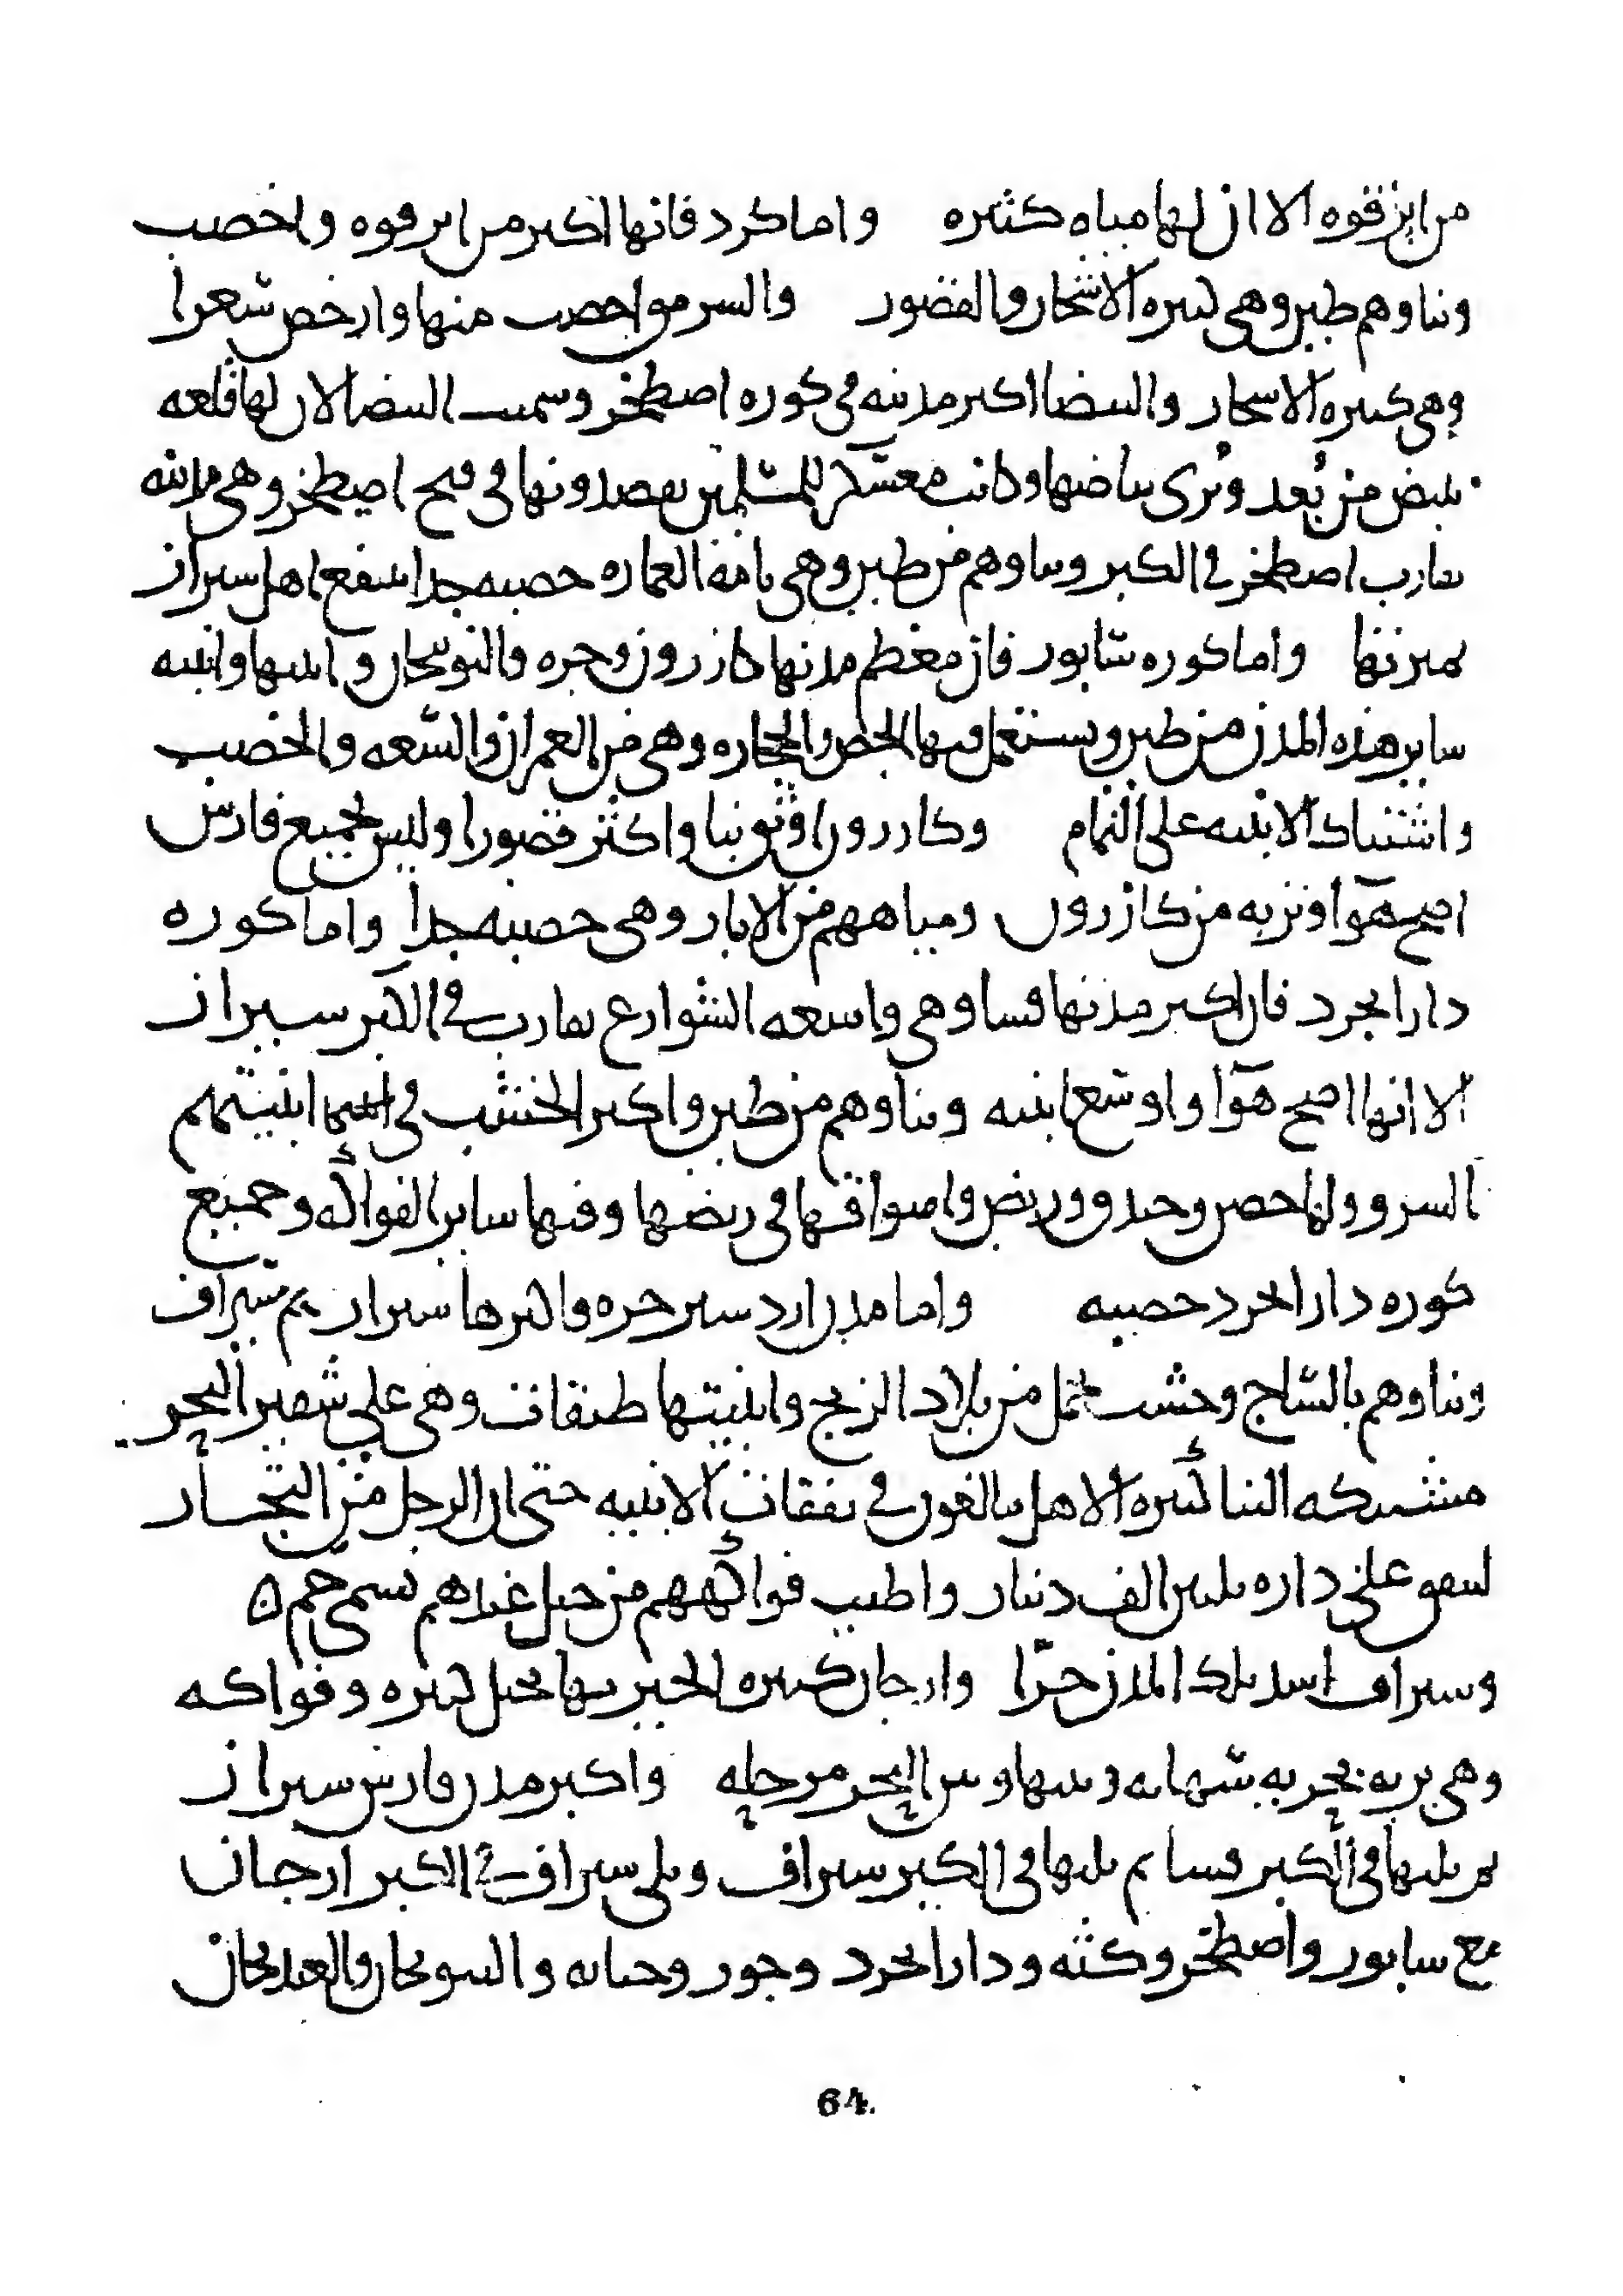 من ابرقوه الا ان لها مياه كثيره واما كرد فانها اكبر من ابرقوه واخصب
وبناوهم طين وهى كثيره الاشجار والقصور والسرمو اخصب منها وارخص سعرا
وهى كثيره الاشجار والبيضا اكبر مدينه فى كوره اصطخر وسميت البيضا لان لها قلعه
تبيض من بعد وترى بياضها وكانت معسكر للمسلمين يقصدونها فى فتح اصطخر وهى مدينه
تقارب اصطخر فى الكبر وبناوهم من طين وهى تامه العماره خصبه جدا ينتفع اهل شيراز
بميرتها واما كوره سابور فان معظم مدنها كازرون وخره والنوبنجان وابنيها وابنيه
ساير هذه المدن من طين ويستعمل فيها الجص والحجاره وهى من العمران والسعه والخصب
واشتباك الابنيه على التمام وكازرون اوثق بنا واكثر قصورا وليس بجميع فارس
اصح هوآ وتربه من كازرون ومياههم من الابار وهى خصبه جدا واما كوره
دارابجرد فان اكبر مدنها فسا وهى واسعه الشوارع تقارب فى الكبر شيراز
الا انها اصح هوآ واوسع ابنيه وبناوهم من طين واكثر الخشب فى ابنيتهم
السرو ولها حصن وخندق وربض واسواقها فى ربضها وفيها ساير الفواكه وجميع
كوره دارابجرد خصبه واما مدن اردشير خره فاكبرها شيراز ثم سيراف
وبناوهم بالساج وخشب يحمل من بلاد الزنج وابنيتها طبقات وهى على شفير البحر
مشتبكه البنا كثيره الاهل يبالغون فى نفقات الابنيه حتى ان الرجل من التجار
لينفق على داره ثلثين الف دينار واطيب فواكههم من جبل عندهم يسمى جم ن
وسيراف اشد تلك المدن حرّا وارجان كثيره الخير بها نخيل كثيره وفواكه
وهى بريه بحريه سهليه وبينها وبين البحر مرحله واكبر مدن فارس شيراز
ثم يليها فى الكبر فسا ثم يليها فى الكبر سيراف ويلى سيراف فى الكبر ارجان
مع سابور واصطخر وكثه ودارابجرد وجور وجنابه والنوبنجان والغندجان
64.